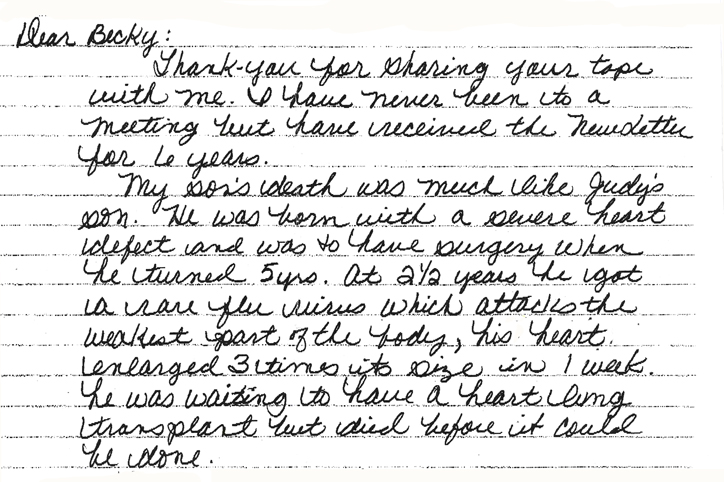 Dear Becky:
Thank-you for sharing your tape
with me. I have never been to a
meeting but have received the Newsletter
for 6 years.
My son's death was much like Judy's
son. He was born with a severe heart
defect and was to have surgery when
he turned 5yrs. At 2 1/2 years he got
a rare flu virus which attacks the
weakest part of the body, his heart.
enlarged 3 times its size in 1 week.
he was waiting to have a heart lung
transplant but died before it could
be done.